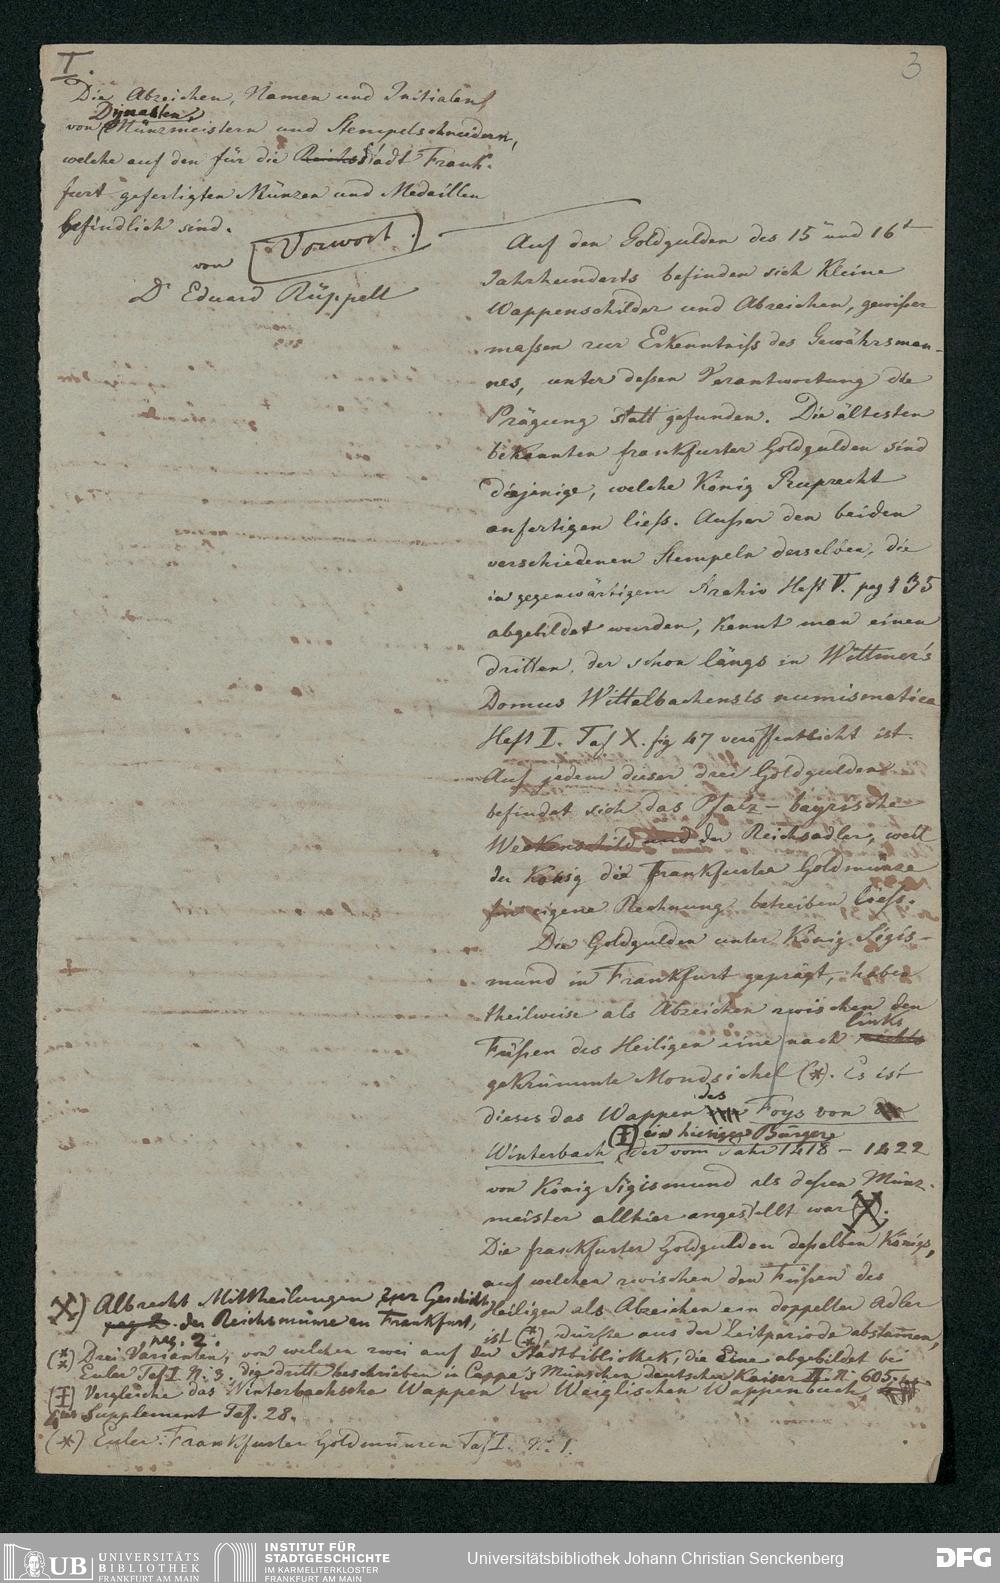 I.
3
Die Abzeichen, Namen und Initialen
Dynasten,
von Münzmeistern und Stempelschneidern,
welche auf den für die Reichsstadt Frank-
furt gefertigten Münzen und Medaillen
befindlich sind.
von
Dr Eduard Rüppell
Vorwort.
Auf den Goldgulden des 15ten und 16t
Jahrhunderts befinden sich kleine
Wappenschilder und Abzeichen, gewißer
maßen zur Erkenntniß des Gewährsman-
nes, unter deßen Verantwortung die
Prägung statt gefunden. Die ältesten
bekannten frankfurter Goldgulden sind
diejenige, welche König Ruprecht
anfertigen ließ. Außer den beiden
verschiedenen Stempeln derselben, die
in gegenwärtigem Archiv Heft V. pag 135
abgebildet wurden, kennt man einen
dritten, der schon längs in Wittmer's
Domus Wittelbachensis numismatica
Heft I. Taf X. fig 47 veröffentlicht ist.
Auf jedem dieser drei Goldgulden
befindet sich das Pfalz-bayrische
Weckenschild und der Reichsadler, weil
der König die Frankfurter Goldmünze
für eigene Rechnung betreiben ließ.
Die Goldgulden unter König Sigis-
mund in Frankfurt geprägt, haben
theilweise als Abzeichen zwischen den
links
Füßen des Heiligen eine nach rechts
gekrümmte Mondsichel (*). Es ist
des
dieses das Wappen Foys von
ein hiesiger Bürger
Winterbach (‡) der vom Jahr 1418 – 1422
von König Sigismund als deßen Münz-
meister allhier angestellt war (X).
Die frankfurter Goldgulden deßelben Königs,
auf welchen zwischen den Füßen des
Heiligen als Abzeichen ein doppelter Adler
ist (**), dürfte aus der Zeitperiode abstamen,
X) Albrecht Mittheilungen zur Geschicht
pag 2. der Reichsmünze in Frankfurt,
pag. 2.
(**) Drei Varianten, von welchen zwei auf der Stadtbibliothek, die Eine abgebildet bei
Euler Taf I. N. 3, die dritte beschrieben in Cappe's Münzen deutscher Kaiser II. N. 605.
(‡) Vergleiche das Winterbachsche Wappen im Weiglischen Wappenbuch
Supplement Taf. 28.
(*) Euler: Frankfurter Goldmünzen Taf I. N. 1.
UB UNIVERSITÄTS
BIBLIOTHEK
FRANKFURT AM MAIN
INSTITUT FÜR
STADTGESCHICHTE
IM KARMELITERKLOSTER
FRANKFURT AM MAIN
Universitätsbibliothek Johann Christian Senckenberg
DFG